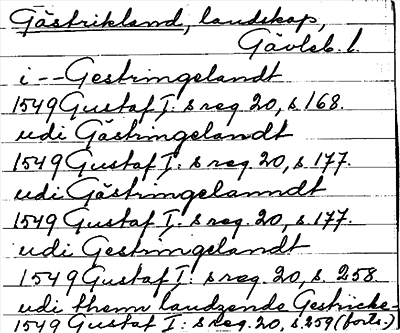 Gästrikland, landskap,
Gävleb. l.
i -- Gestringelandt
1549 Gustaf I:s reg. 20, s. 168.
udi Gästringelandt
1549 Gustaf I:s reg. 20, s. 177.
udi Gästringelanndt
1549 Gustaf I:s reg. 20, s. 177.
udi Gestringelandt
1549 Gustaf I:s reg. 20, s. 258.
udi them landzende Gestricke-
1549 Gustaf I:s Reg. 20, s. 259 (forts.)